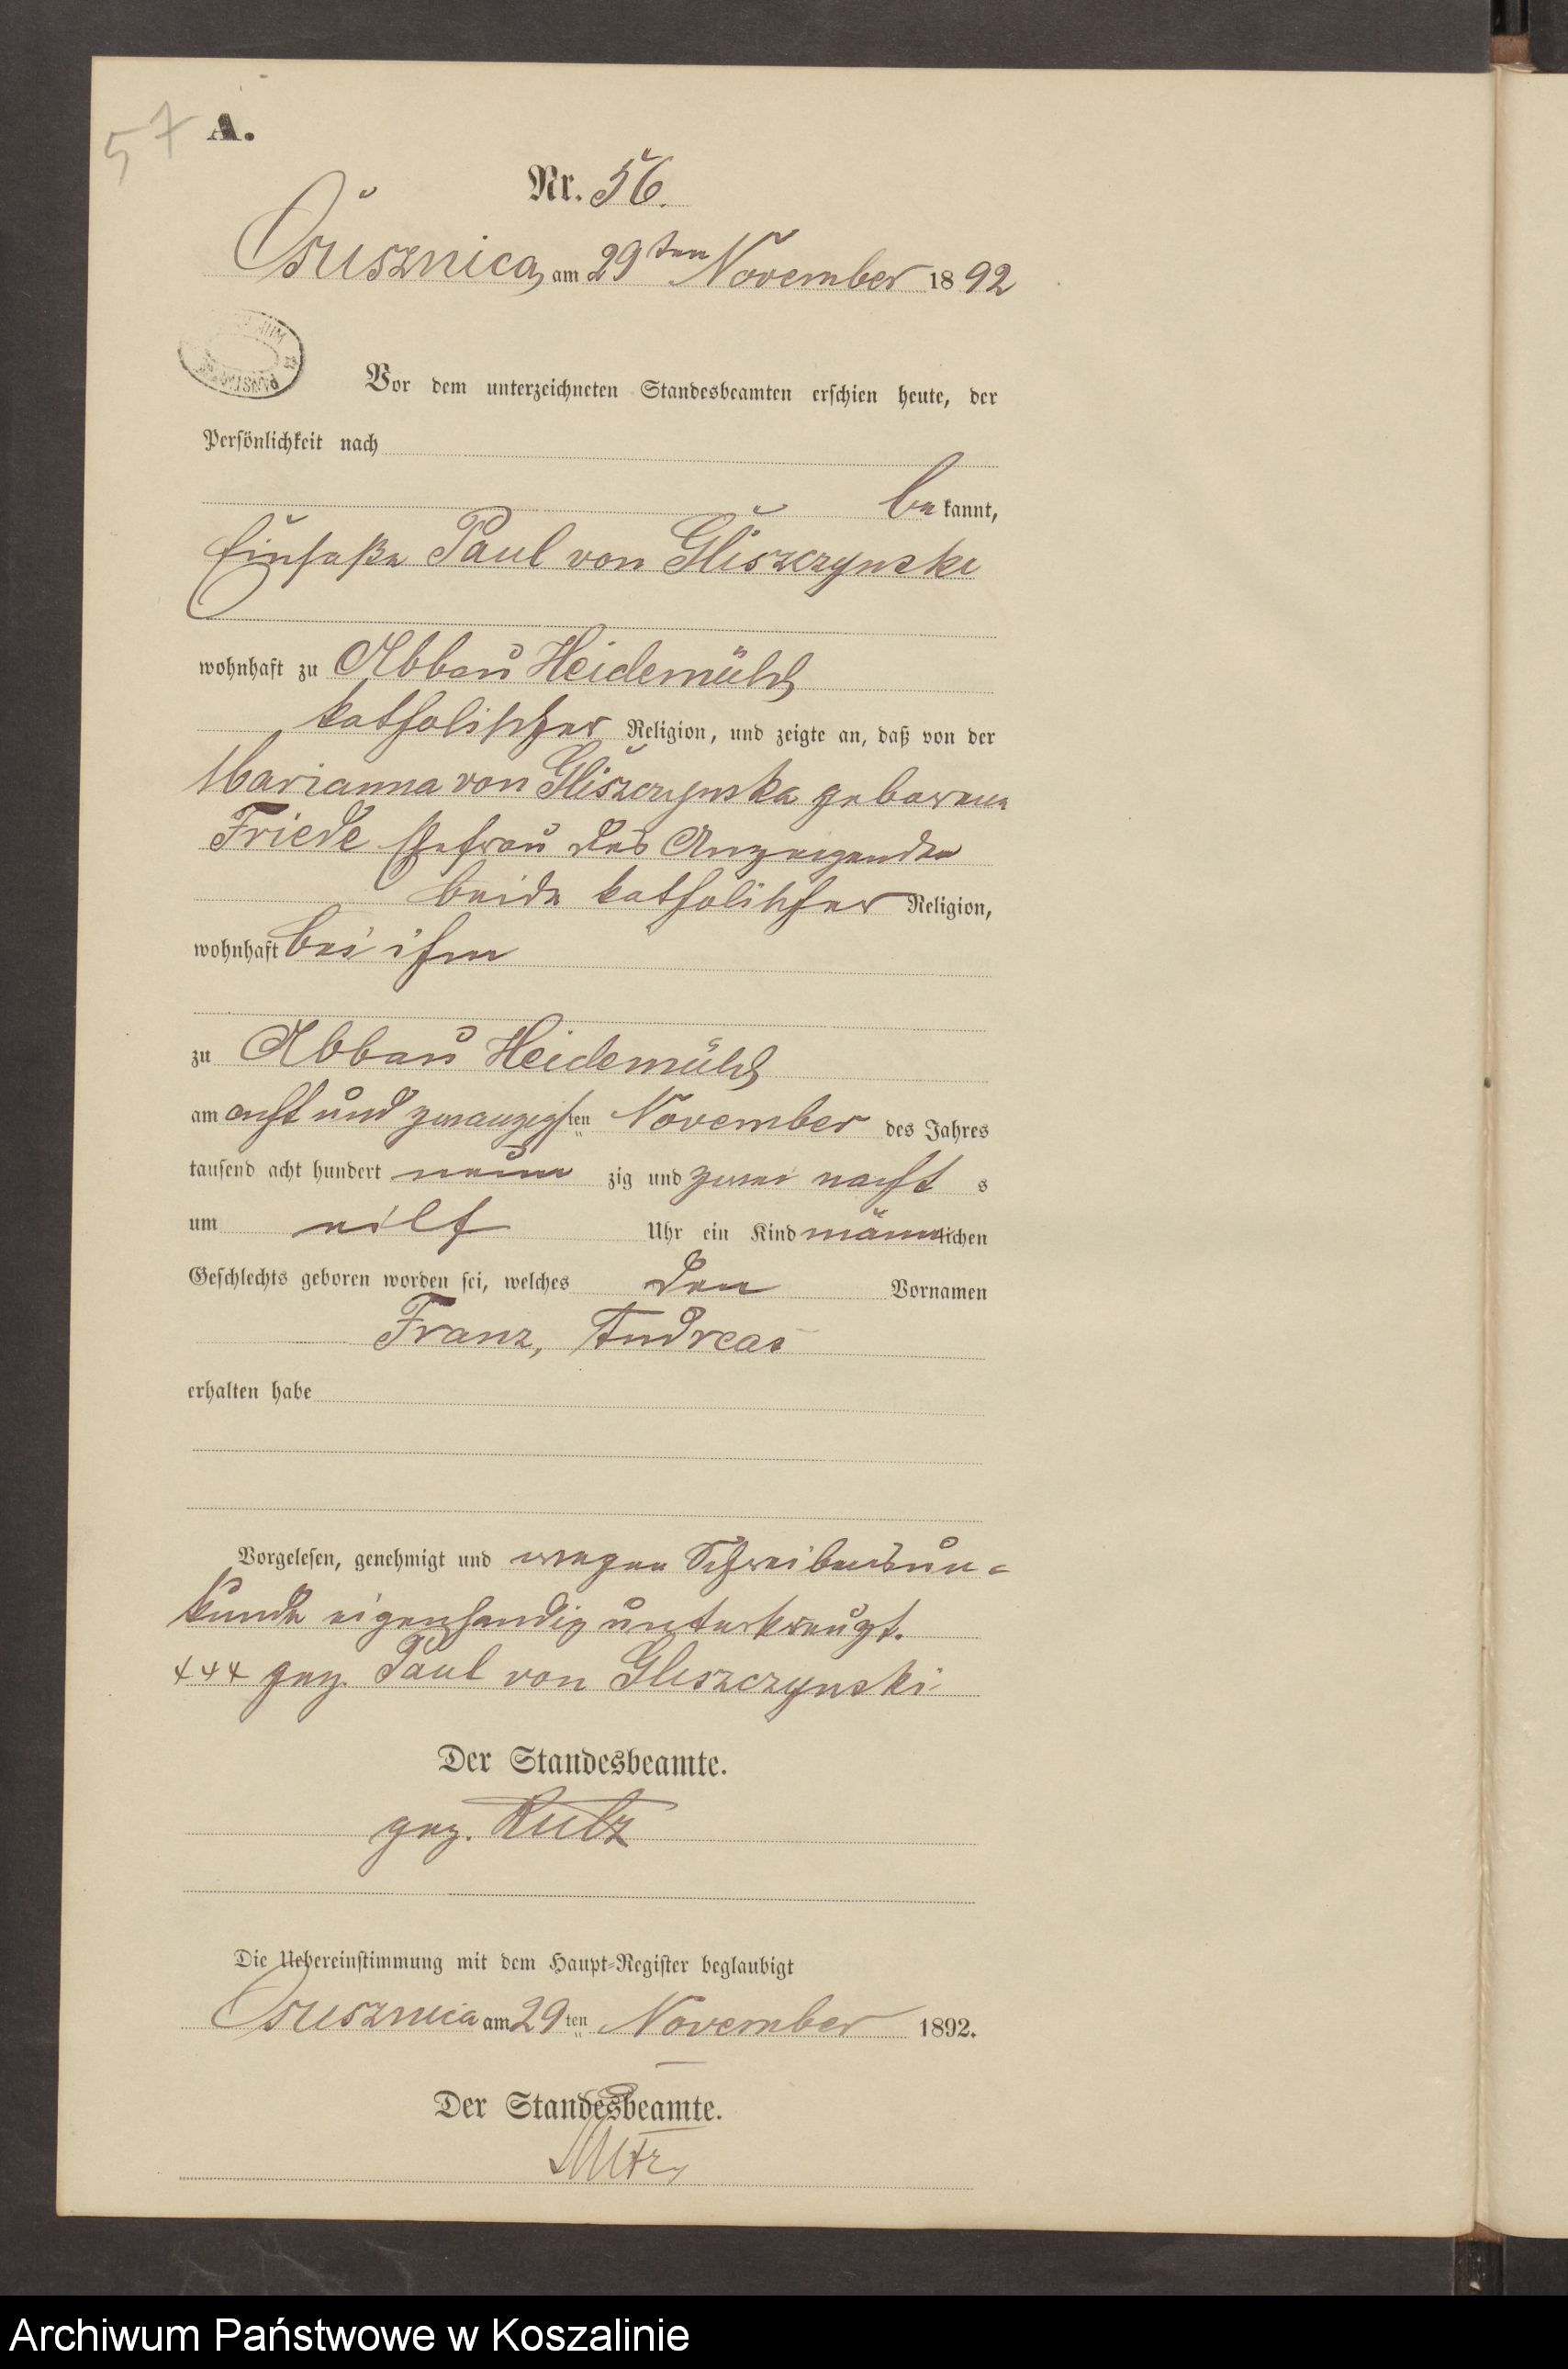 57
A.
Nr. 56.
Osusznica, am 29ten November 1892
Vor dem unterzeichneten Standesbeamten erschien heute, der
Persönlichkeit nach
bekannt,
Einsaße Paul von Gliszczynski
wohnhaft zu Abbau Heidemühl
katholischer Religion, und zeigte an, daß von der
Marianna von Gliszczynska geborenen
Friede Ehefrau des Anzeigenden
beide katholischer Religion,
wohnhaft bei ihm
zu Abbau Heidemühl
am acht und zwanzigsten November des Jahres
tausend acht hundert neun zig und zwei nachts
um eilf Uhr ein Kind männlichen
Geschlechts geboren worden sei, welches den Vornamen
Franz, Andreas
erhalten habe
Vorgelesen, genehmigt und wegen Schreibensun=
kunde eigenhändig unterkreuzt.
+++ gez. Paul von Gliszczynski
Der Standesbeamte.
gez. Rutz
Die Uebereinstimmung mit dem Haupt-Register beglaubigt
Osusznica am 29ten November 1892.
Der Standesbeamte.
Rutz
Archiwum Państwowe w Koszalinie